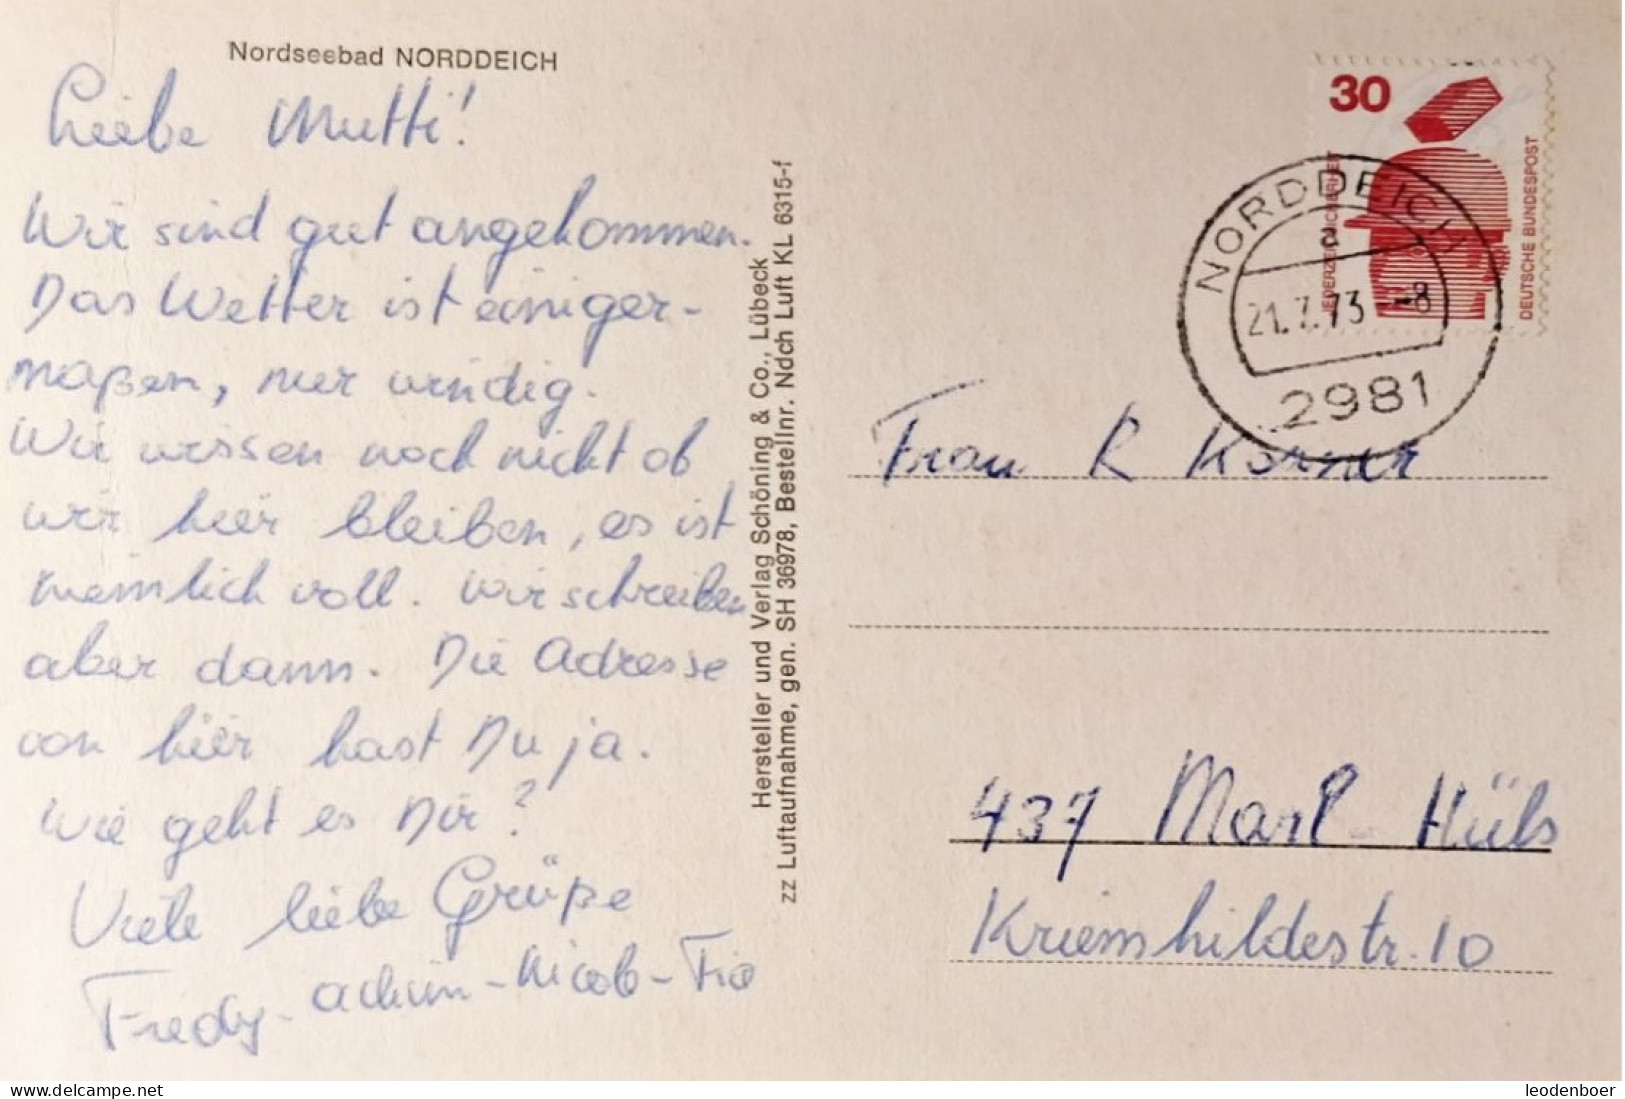 Nordseebad NORDDEICH
Liebe Mutti!
Wir sind gut angekommen.
Das Wetter ist einiger-
maßen, nur windig.
Wir wissen noch nicht ob
wir hier bleiben, es ist
ziemlich voll. Wir schreiben
aber dann. Die Adresse
von hier hast Du ja.
Wie geht es Dir?
Viele liebe Grüße
Fredy - Achim - Nicole - Fie
Hersteller und Verlag Schöning & Co., Lübeck
zz Luftaufnahme, gen. SH 36978, Bestellnr. Ndch Luft KL 6315-f
30
JEDERZEIT SICHERHEIT
DEUTSCHE BUNDESPOST
NORDDEICH
a
21.7.73 -8
2981
Frau R Korner
437 Marl-Hüls
Kriemhildestr. 10
www.delcampe.net
leodenboer